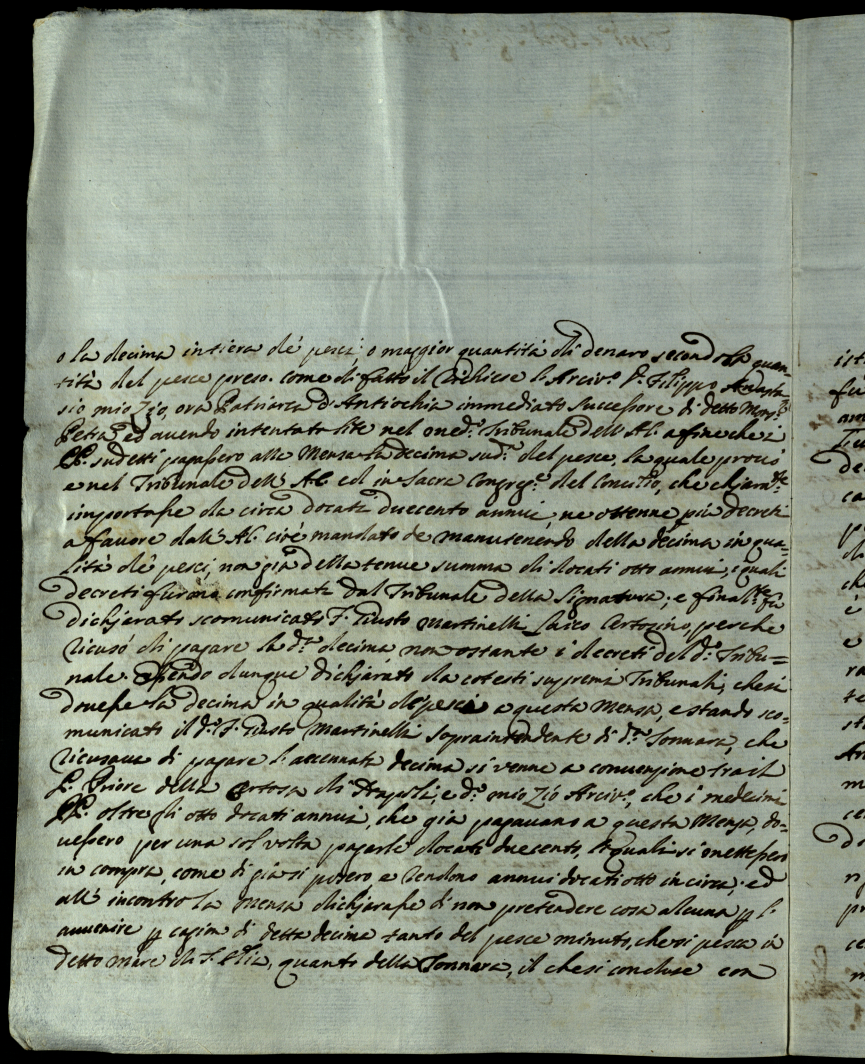 o la decima intiera de' pesci, o maggior quantità di denaro secondo la quan-
tità del pesce preso. Come di fatto il richiese l'Arciv.o F. Filippo Anasta-
sio mio Zio, ora Patriarca d'Antiochia immediato successore di detto Mons.r
Petra, ed avendo intentata lite nel med.o Tribunale dell'A.C. a fine che i
PP. sudetti pagassero alla Mensa la decima sud.a del pesce, la quale provò
e nel Tribunale dell'A.C. ed in Sacra Congreg.e del Concilio, che chiaram.te
importasse da circa docati duecento annui, ne ottenne più decreti
a favore dall'A.C. cioè mandato de manutenendo della decima in qua-
lità de' pesci, non già della tenue summa di docati otto annui, i quali
decreti furono confirmati dal Tribunale della Signatura; e final.te fu
dichjarato scomunicato F. Giusto Martinelli Laico Certosino, perche
ricusò di pagare la d.a decima, non ostante i decreti del d.o Tribu=
nale. Essendo dunque dichjarato da cotesti supremi Tribunali, che si
dovesse la decima in qualità de' pesci a questa Mensa, e stando sco-
municato il d.o F. Giusto Martinelli sopraintendente di d.a Tonnara, che
ricusava di pagare l'accennata decima si venne a convenzione tra il
P. Priore della Certosa di Napoli, e d.o mio Zio Arciv.o, che i medesimi
PP. oltre gli otto docati annui, che già pagavano a questa Mensa, do=
vessero per una sol volta pagarle docati duecento, li quali si mettessero
in compra, come di già si posero e rendono annui docati otto in circa; ed
all'incontro la Mensa dichjarasse di non pretendere cosa alcuna p l'
avvenire p cagion di detta decima tanto del pesce minuto, che si pesca in
detto mare di S. Elia, quanto della Tonnara, il che si concluse con